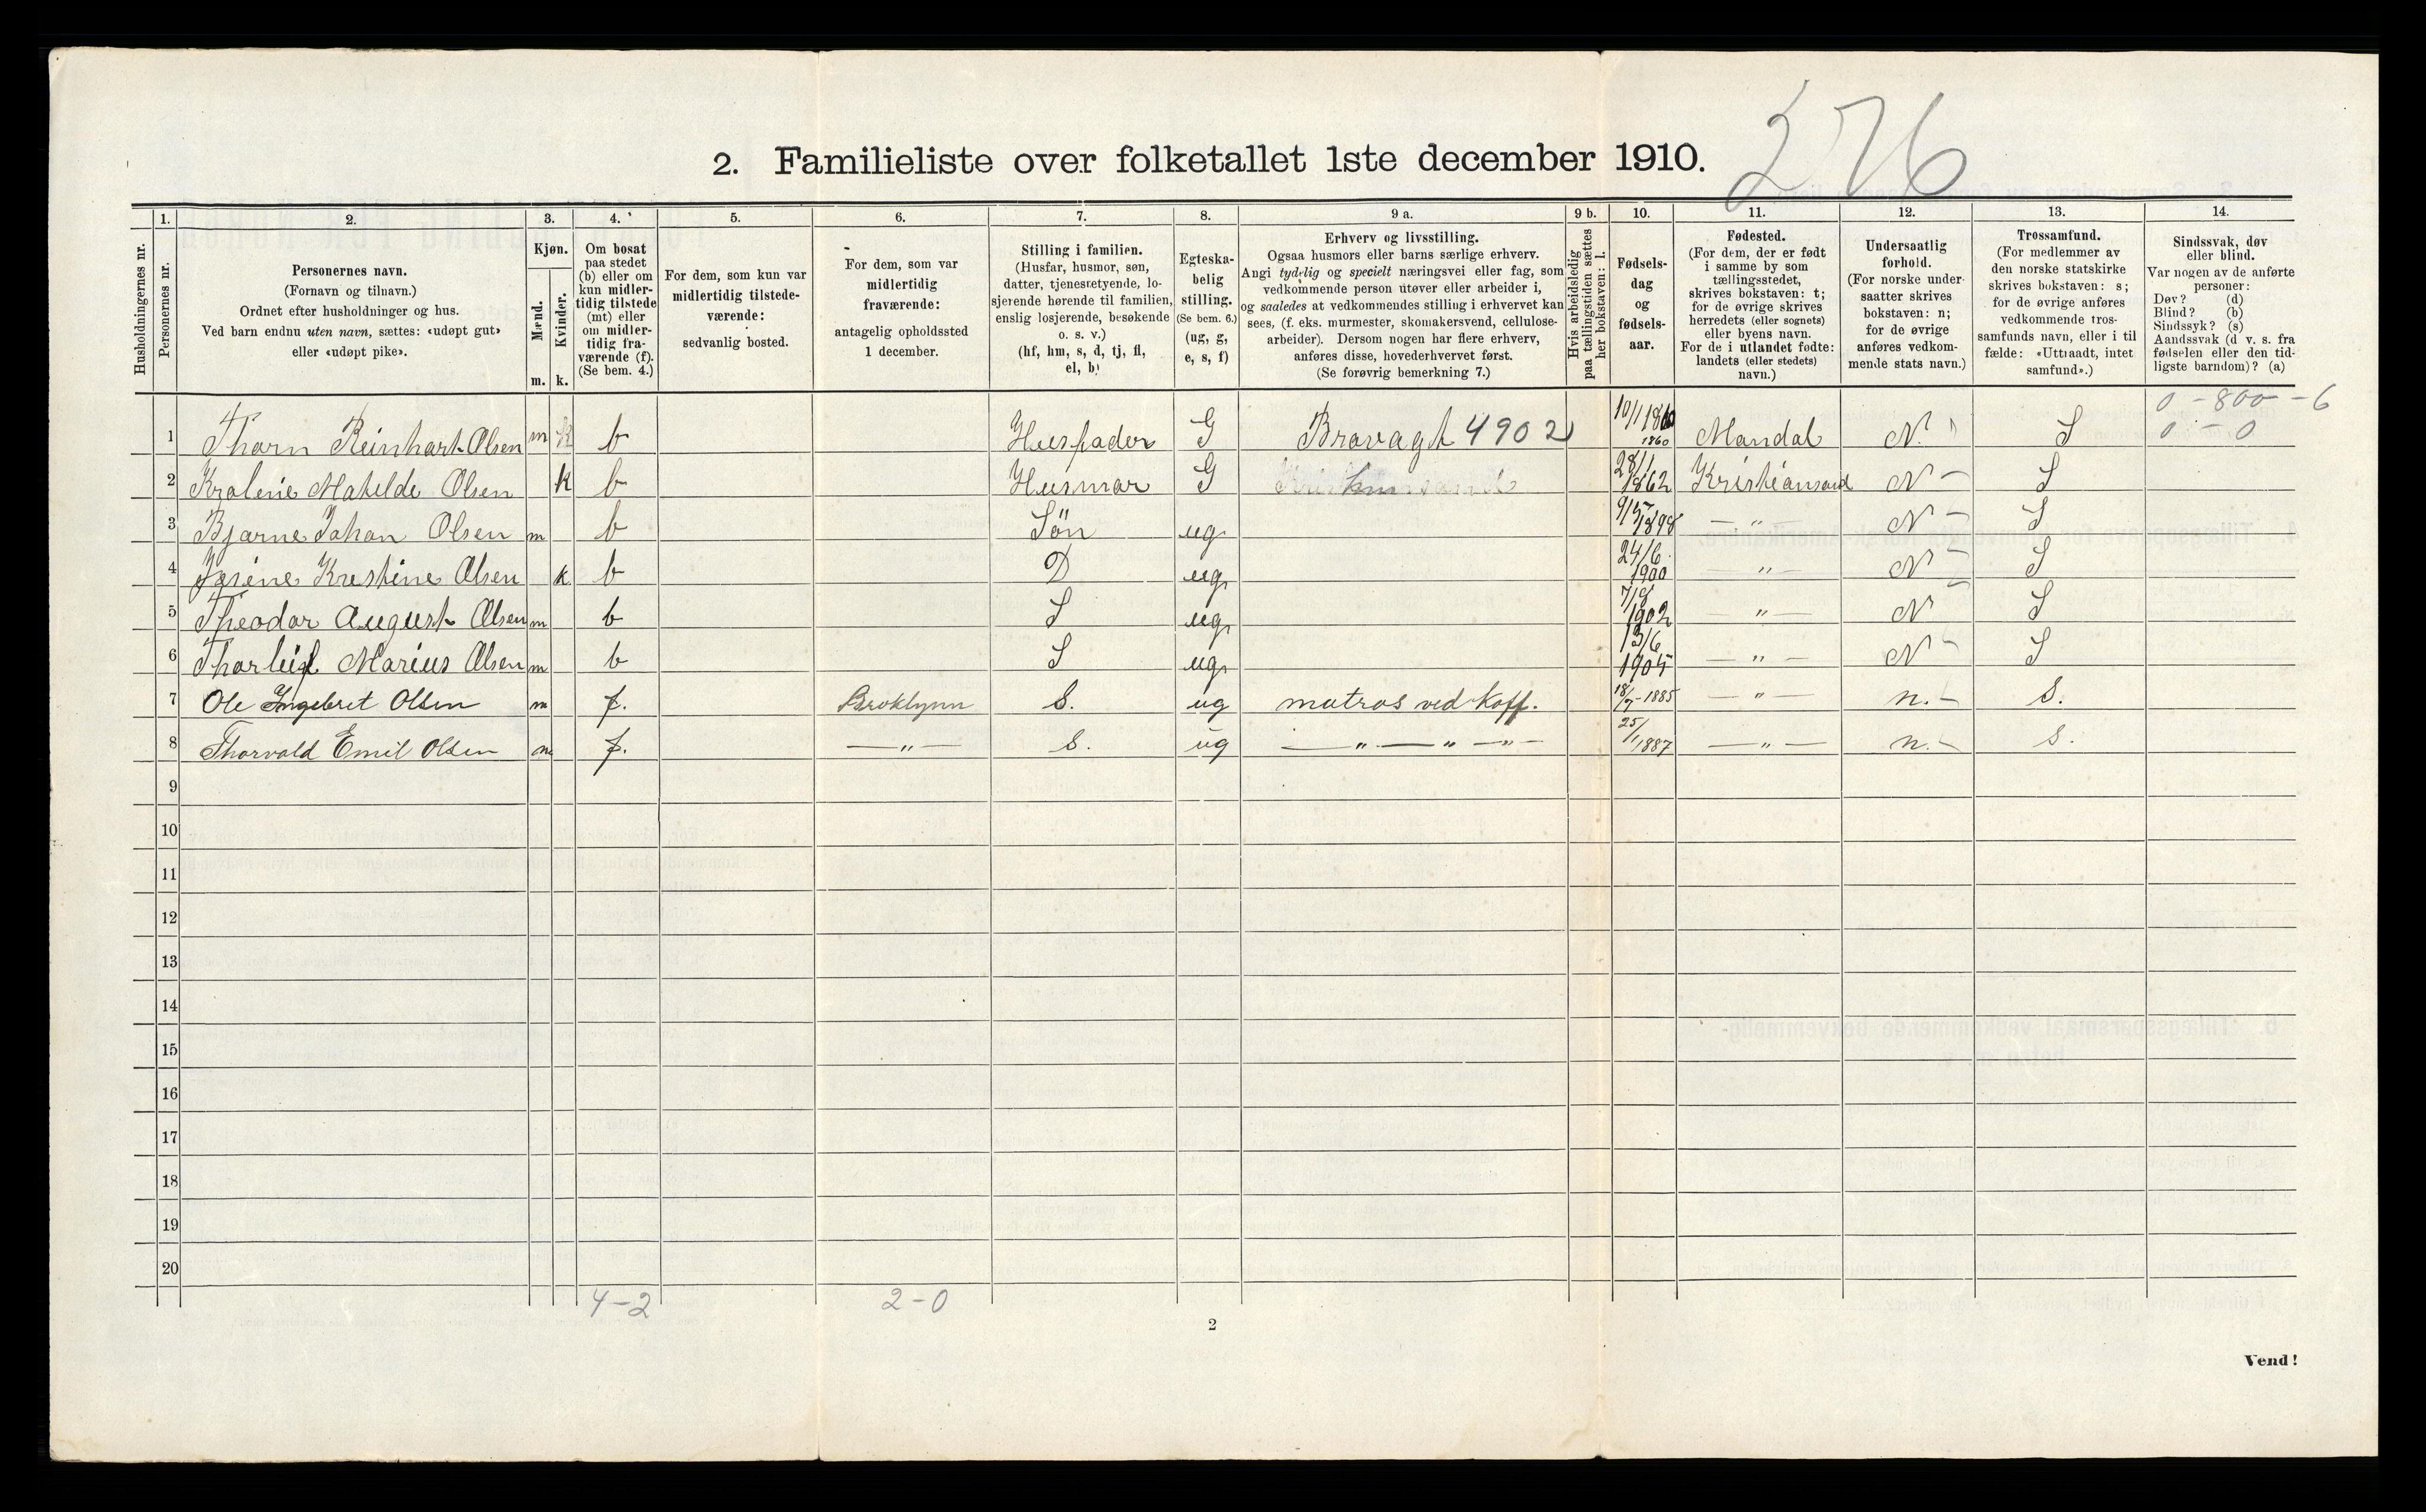 276
2. Familieliste over folketallet 1ste december 1910.
Husholdningernes nr.
1. Personernes nr.
2. Personernes navn. (Fornavn og tilnavn.) Ordnet efter husholdninger og hus. Ved barn endnu uten navn, sættes: «udøpt gut» eller «udøpt pike».
3. Kjøn. Mænd. m. Kvinder. k.
4. Om bosat paa stedet (b) eller om kun midlertidig tilstede (mt) eller om midlertidig fraværende (f). (Se bem. 4.)
5. For dem, som kun var midlertidig tilstedeværende: sedvanlig bosted.
6. For dem, som var midlertidig fraværende: antagelig opholdssted 1 december.
7. Stilling i familien. (Husfar, husmor, søn, datter, tjenestetyende, losjerende hørende til familien, enslig losjerende, besøkende o. s. v.) (hf, hm, s, d, tj, fl, el, b)
8. Egteskabelig stilling. (Se bem. 6.) (ug, g, e, s, f)
9 a. Erhverv og livsstilling. Ogsaa husmors eller barns særlige erhverv. Angi tydelig og specielt næringsvei eller fag, som vedkommende person utøver eller arbeider i, og saaledes at vedkommendes stilling i erhvervet kan sees, (f. eks. murmester, skomakersvend, cellulosearbeider). Dersom nogen har flere erhverv, anføres disse, hovederhvervet først. (Se forøvrig bemerkning 7.)
9 b. Hvis arbeidsledig paa tællingstiden sættes her bokstaven: l.
10. Fødselsdag og fødselsaar.
11. Fødested. (For dem, der er født i samme by som tællingsstedet, skrives bokstaven: t; for de øvrige skrives herredets (eller sognets) eller byens navn. For de i utlandet fødte: landets (eller stedets) navn.)
12. Undersaatlig forhold. (For norske undersaatter skrives bokstaven: n; for de øvrige anføres vedkommende stats navn.)
13. Trossamfund. (For medlemmer av den norske statskirke skrives bokstaven: s; for de øvrige anføres vedkommende trossamfunds navn, eller i tilfælde: «Uttraadt, intet samfund».)
14. Sindssvak, døv eller blind. Var nogen av de anførte personer: Døv? (d) Blind? (b) Sindssyk? (s) Aandssvak (d v. s. fra fødselen eller den tidligste barndom)? (a)
0 - 800 - 6
0 - 0
1 Thorn Reinhart Olsen m b Husfader G Brovagt 4902 10/1 1860 1860 Mandal N. S
2 Kralene Matelde Olsen k b Husmor G 28/1 1862 Kristiansand N - S
3 Bjarne Johan Olsen m b Sön ug 9/5 1898 — " — N - S
4 Jøsine Kristine Olsen k b D ug 24/6 1900 — " — N - S
5 Theodor August Olsen m b S ug 7/8 1902 — " — N - S
6 Thorleif Marius Olsen m b S ug 13/6 1905 — " — N - S
7 Ole Ingebret Olsen m f. Broklynn S. ug matros ved Koff. 18/7-1885 — " — n. - S.
8 Thorvald Emil Olsen m f. — " — S. ug — " — " — " — 25/1 1887 — " — n. - S.
9
10
11
12
13
14
15
16
17
18
19
20
4-2 2-0
2
Vend!